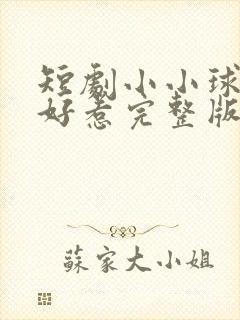 短劇小小球
好惹完整版
蘇家大小姐